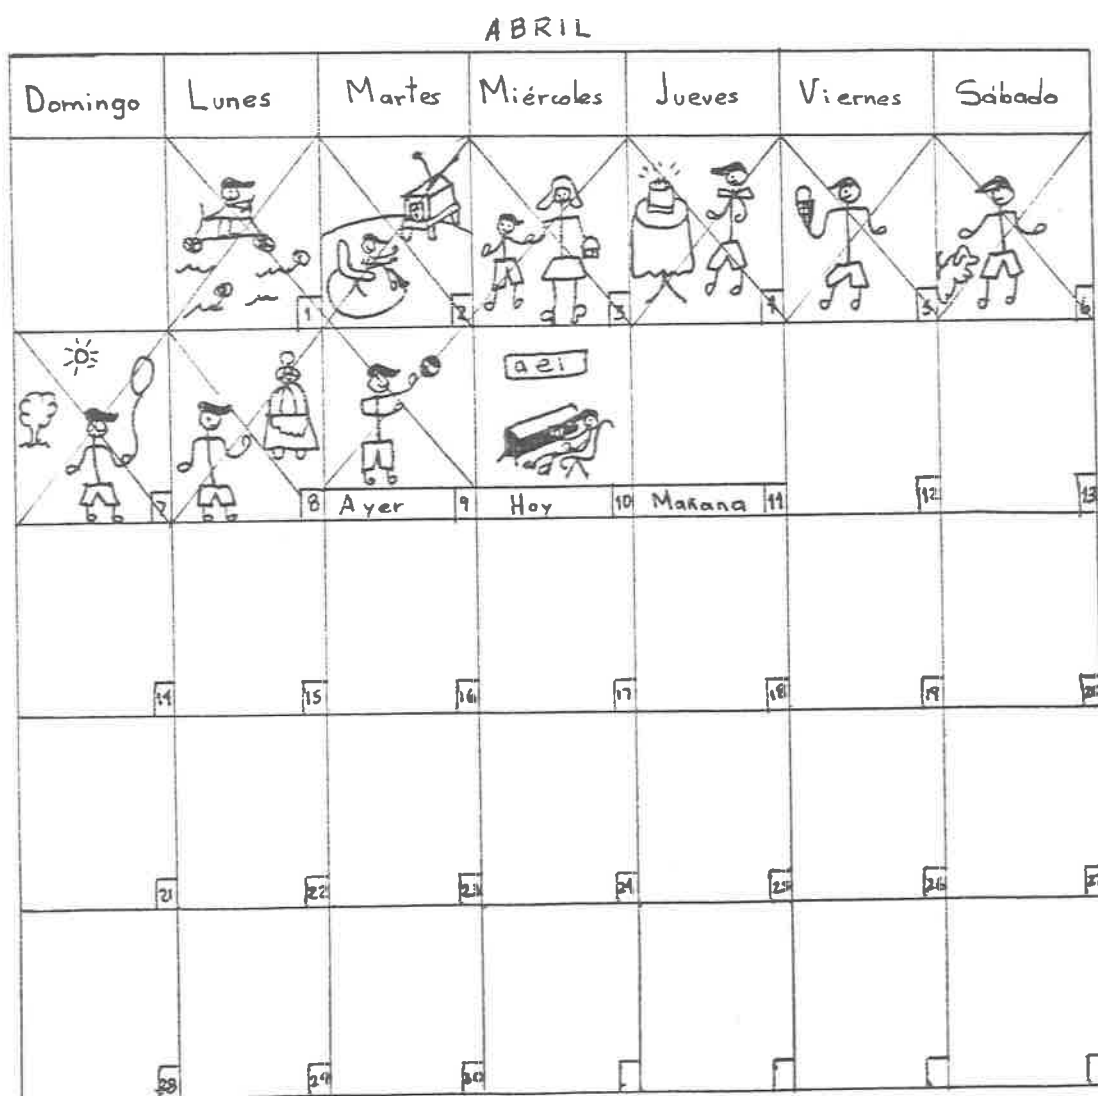 ABRIL
Domingo Lunes Martes Miércoles Jueves Viernes Sábado
1 2 3 4 5 6
a e i
7 8 Ayer 9 Hoy 10 Mañana 11 12 13
14 15 16 17 18 19 20
21 22 23 24 25 26
28 29 30